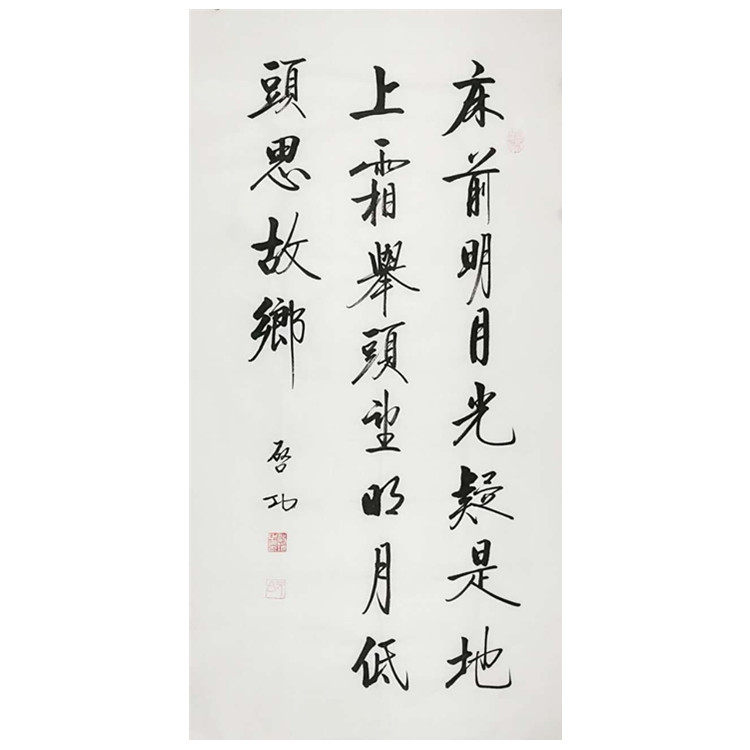 床前明月光疑是地
上霜舉頭望明月低
頭思故鄉
啓功